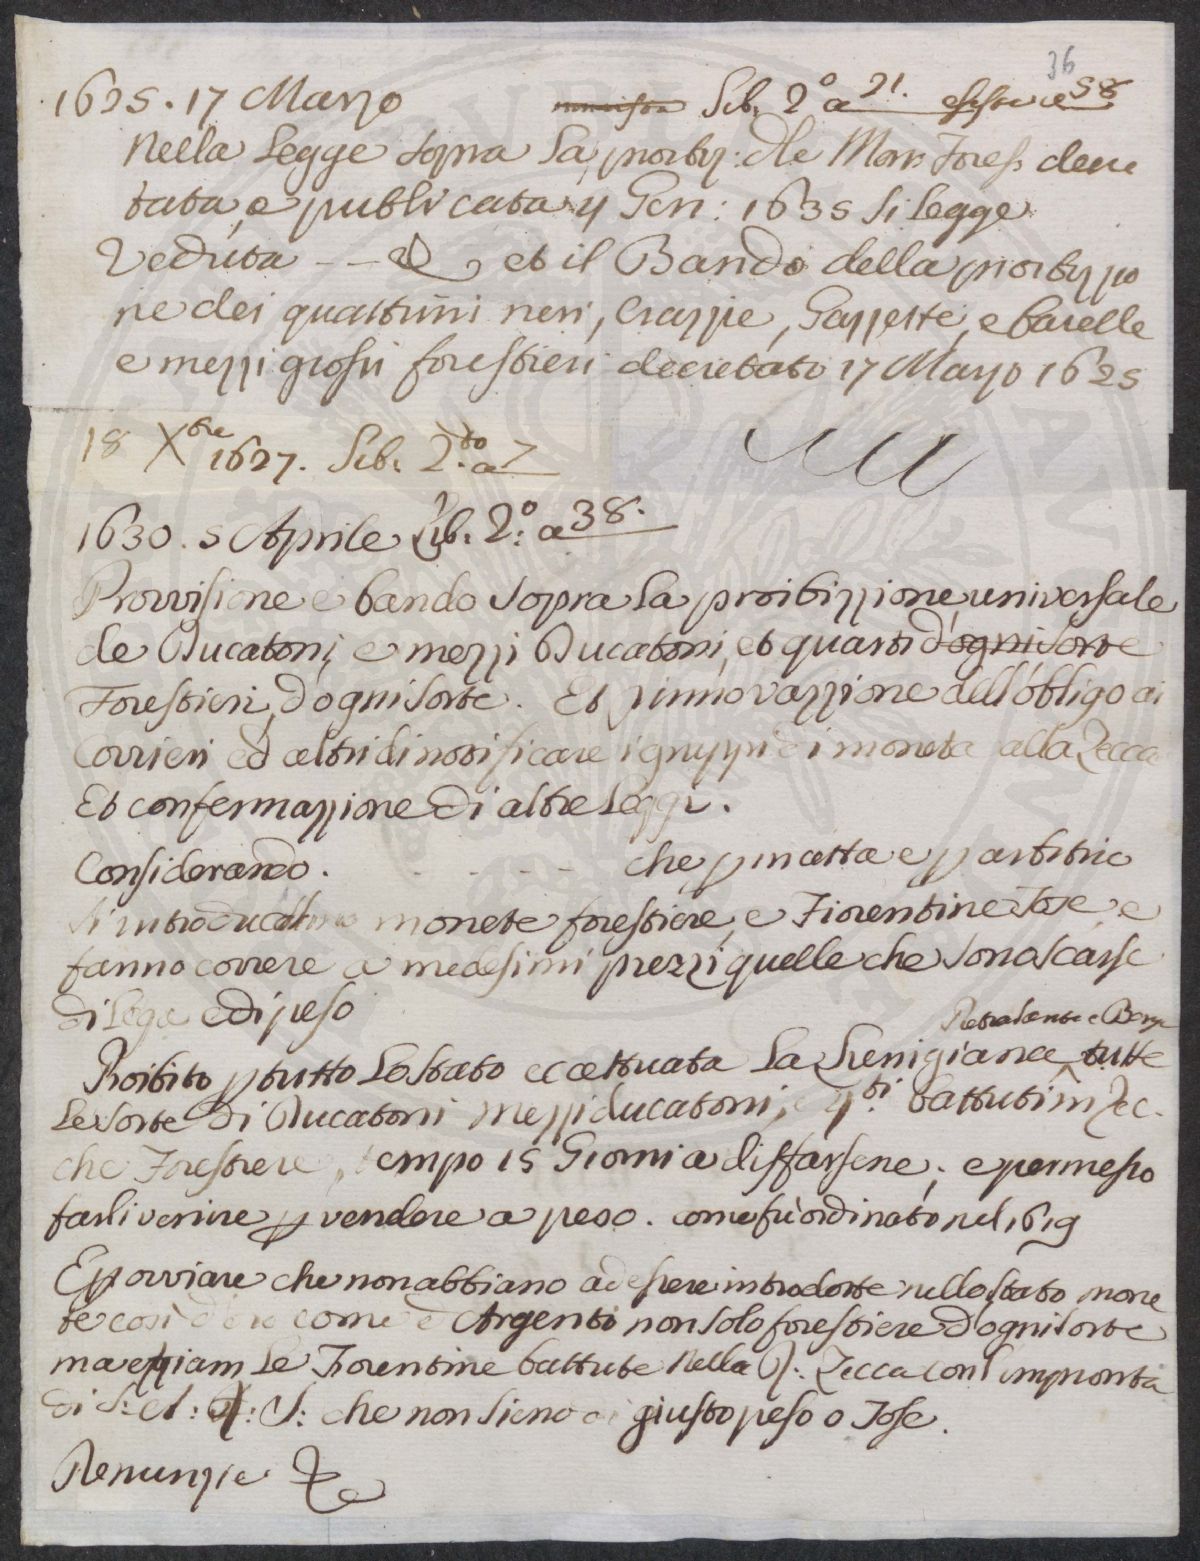 36
1625. 17 Marzo Lib. 2.° a 21. e a 58
Nella Legge sopra la proibz: dle Mon: Fores. decre
tata, e publicata 4 Gen: 1635 si legge
Veduta - - & et il Bando della proibizzio
ne dei quattrini neri, Crazzie, Gazzette, e barelle
e mezzi grossi forestieri decretato 17 Marzo 1625
18 Xbre 1627. Lib. 2.do a 7
1630. 5 Aprile Lib. 2.° a 38.
Provvisione e bando sopra la proibizzione universale
de Ducatoni, e mezzi Ducatoni, et quarti d'ogni sorte
Forestieri, d'ogni sorte. Et rinnovazzione dell'obbligo ai
Corrieri ed altri di notificare i gruppi di moneta alla Zecca
Et confermazzione di altre Leggi.
Considerando. - - - - che p in atta e p artitrio
si introducano monete forestiere, e Fiorentine Tose, e
fanno correre a medesimi prezzi quelle che sono scarse
di lega e di peso
Pietrasanta e Barga
Proibito p tutto lo stato eccettuata la Lunigiana, tutte
le sorte di Ducatoni mezzi ducatoni, e q.ti battuti in Zec-
che Forestiere, tempo 15 Giorni a disfarsene, e permesso
farli venire p vendere a peso. come fù ordinato nel 1619
E p ovviare che non abbiano ad essere introdotte nello stato mone
te così d'oro come d'Argento non solo forestiere d'ogni sorte
ma eziam le Fiorentine battute nella Zecca con l'impronta
di S: A: S: che non sieno di giusto peso o Tose.
Renunzie &